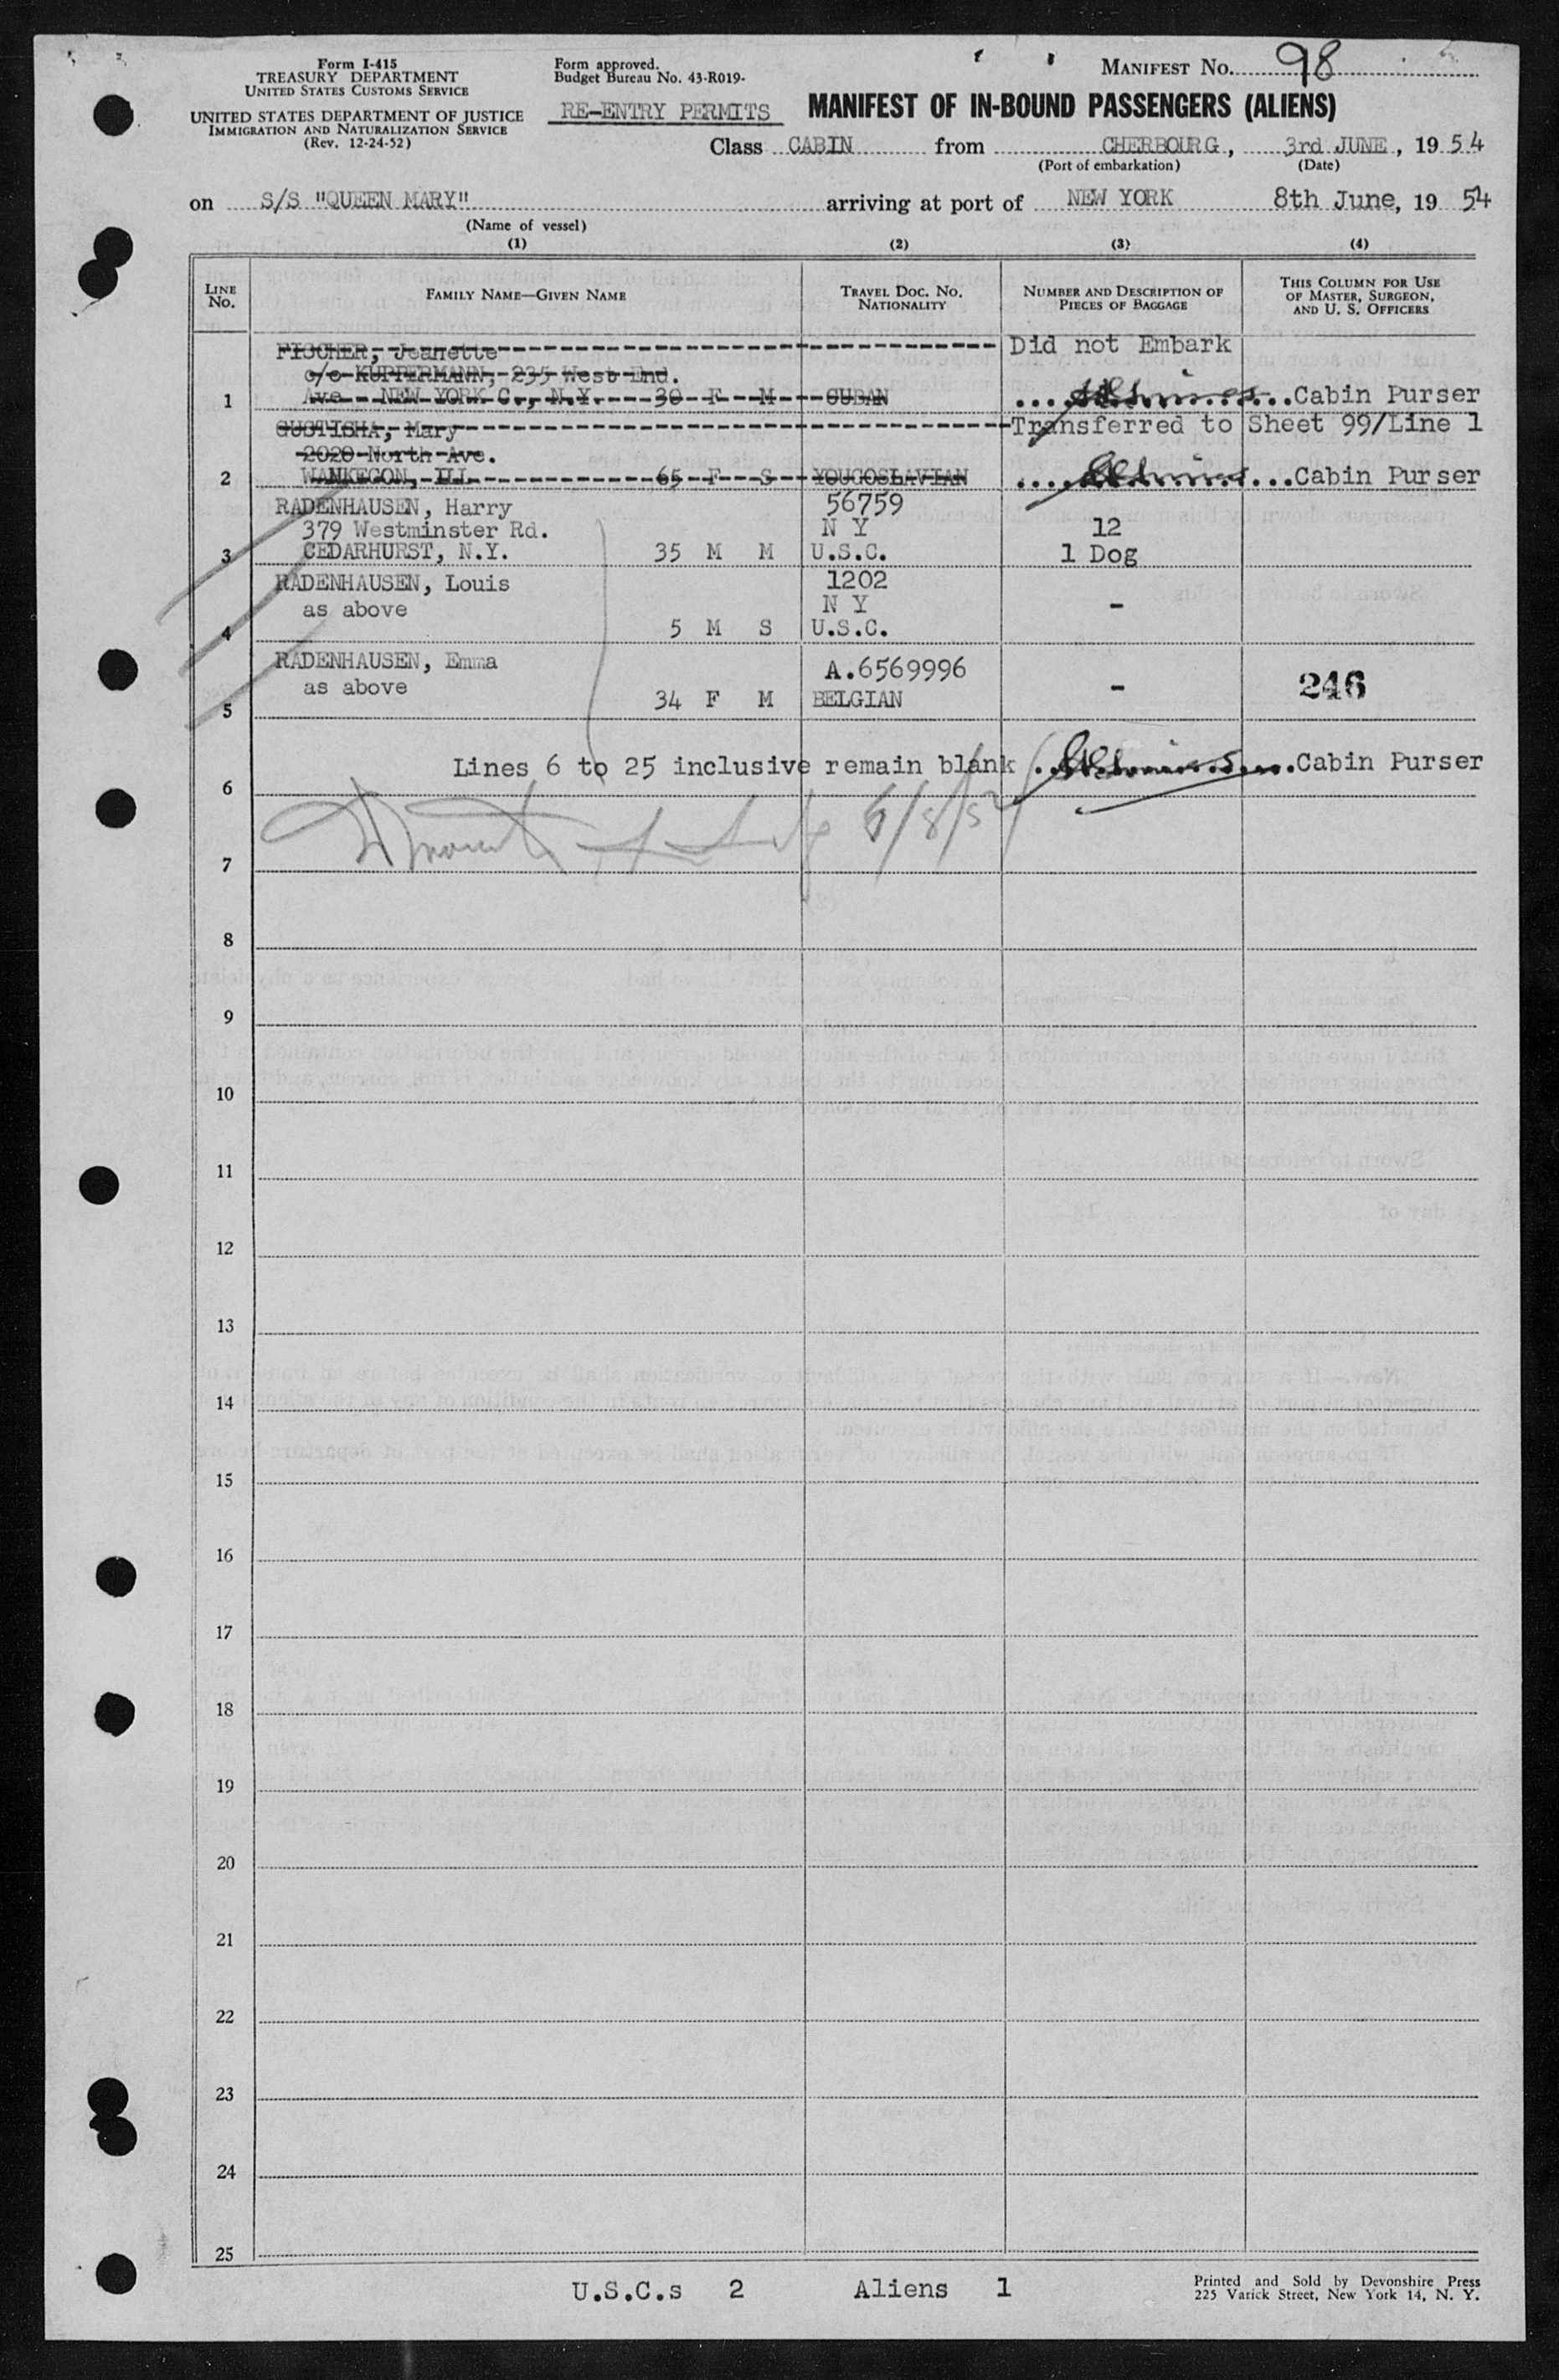 Form I-415
TREASURY DEPARTMENT
UNITED STATES CUSTOMS SERVICE
UNITED STATES DEPARTMENT OF JUSTICE
IMMIGRATION AND NATURALIZATION SERVICE
(Rev. 12-24-52)
Form approved.
Budget Bureau No. 43-R019-
RE-ENTRY PERMITS
MANIFEST NO. 98
MANIFEST OF IN-BOUND PASSENGERS (ALIENS)
Class CABIN from CHERBOURG, 3rd JUNE, 1954
(Port of embarkation) (Date)
on S/S "QUEEN MARY" arriving at port of NEW YORK 8th June, 19 54
(Name of vessel)
(1) (2) (3) (4)
LINE NO. FAMILY NAME—GIVEN NAME TRAVEL DOC. NO. NATIONALITY NUMBER AND DESCRIPTION OF PIECES OF BAGGAGE THIS COLUMN FOR USE OF MASTER, SURGEON, AND U. S. OFFICERS
FISCHER, Jeanette Did not Embark
c/o KUPPERMANN, 235 West End.
1 Ave. NEW YORK C., N.Y. 30 F M CUBAN Cabin Purser
GUSTISHA, Mary Transferred to Sheet 99/Line 1
2020 North Ave.
2 WANKEGON, ILL 65 F S YOUGOSLAVIAN Cabin Purser
RADENHAUSEN, Harry 56759
379 Westminster Rd. N Y 12
3 CEDARHURST, N.Y. 35 M M U.S.C. 1 Dog
RADENHAUSEN, Louis 1202
as above N Y -
4 5 M S U.S.C.
RADENHAUSEN, Emma A.6569996
as above - 246
5 34 F M BELGIAN
Lines 6 to 25 inclusive remain blank Cabin Purser
6
6/8/54
7
8
9
10
11
12
13
14
15
16
17
18
19
20
21
22
23
24
25
U.S.C.s 2 Aliens 1
Printed and Sold by Devonshire Press
225 Varick Street, New York 14, N. Y.